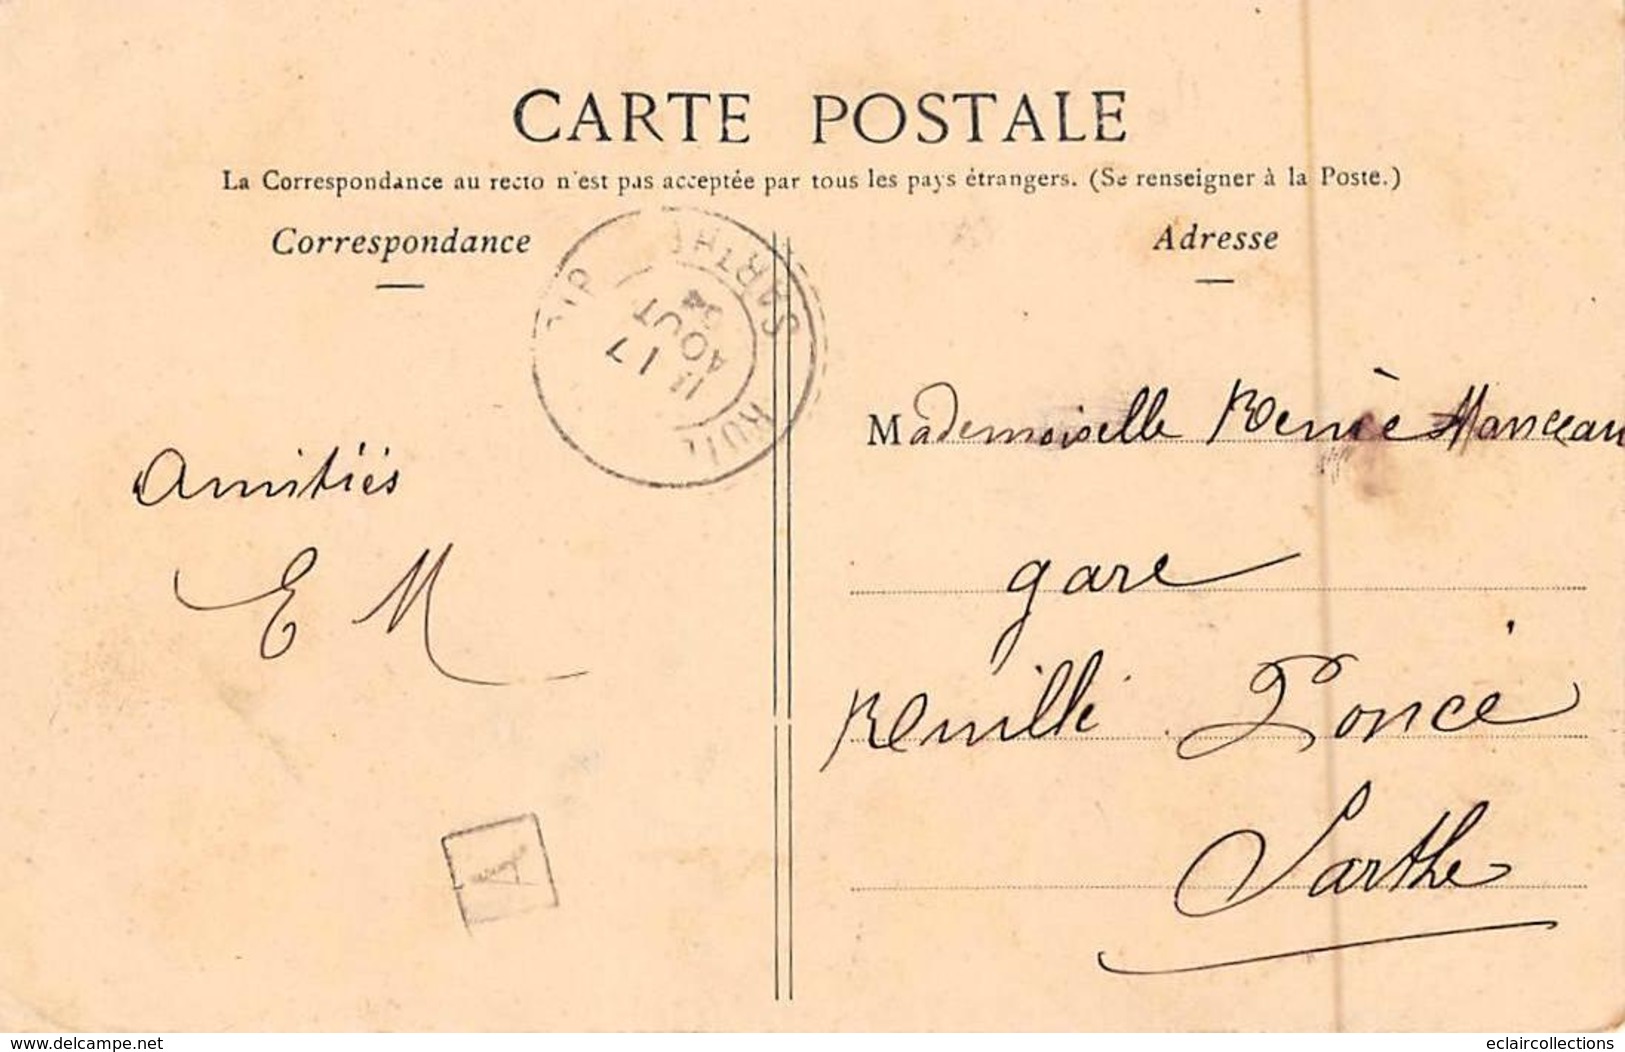 CARTE POSTALE
La Correspondance au recto n'est pas acceptée par tous les pays étrangers. (Se renseigner à la Poste.)
Correspondance
Adresse
SARTHE
17
AOUT
RUIL
Mademoiselle Renée Manceau
Amitiés
gare
E M
Ruillé Poncé
Sarthe
www.delcampe.net
eclaircollections